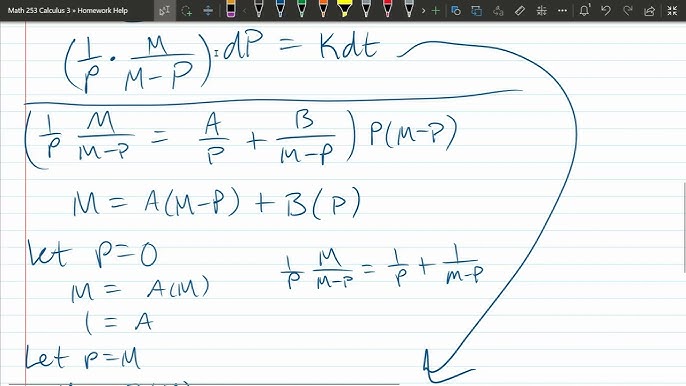 Math 253 Calculus 3 » Homework Help
(1/P · M/(M-P)) · dP = Kdt
(1/P M/(M-P) = A/P + B/(M-P)) P(M-P)
M = A(M-P) + B(P)
Let P=0
1/P M/(M-P) = 1/P + 1/(M-P)
M = A(M)
1 = A
Let P=M